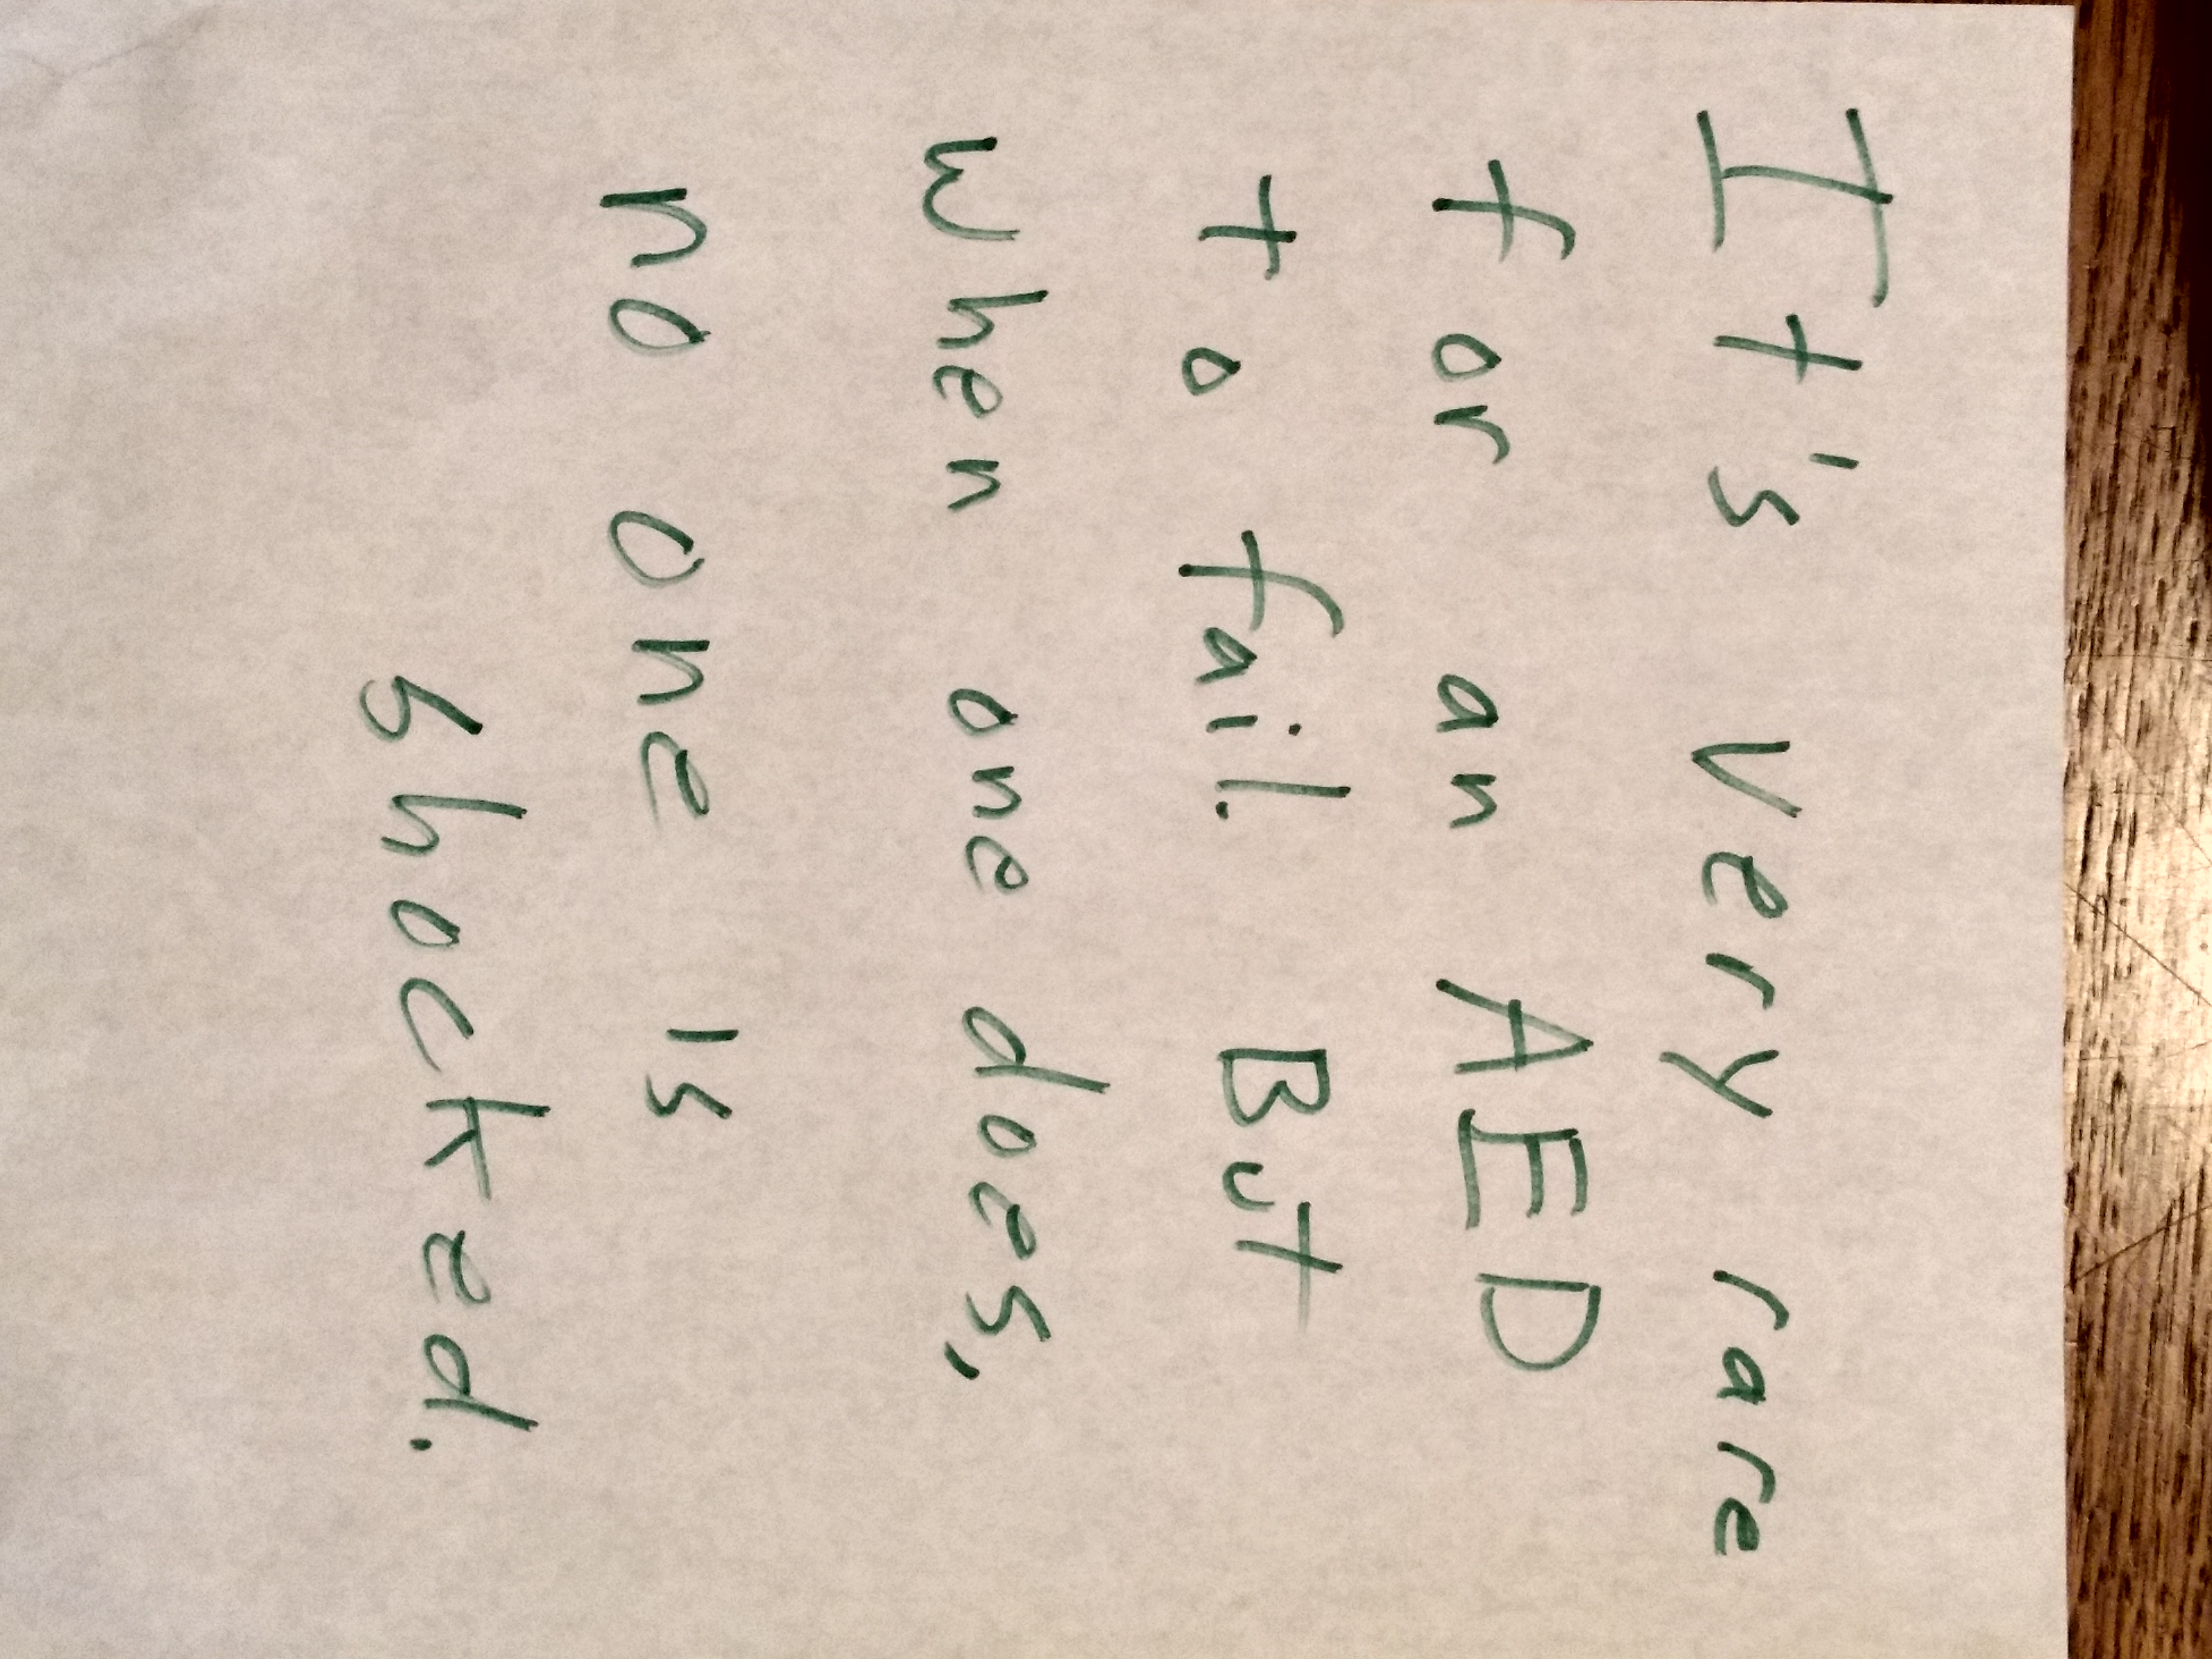 It's very rare
for an AED
to fail. But
when one does,
no one is
shocked.